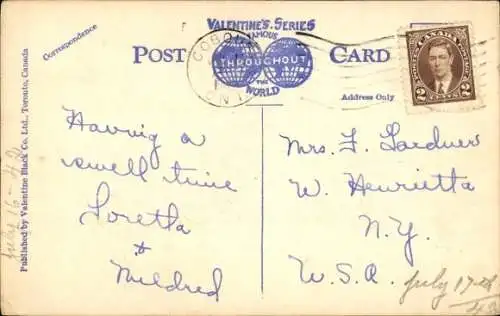 VALENTINE'S SERIES
FAMOUS
THROUGHOUT
THE
WORLD
POST CARD
Correspondence
Address Only
COBO
ONT
CANADA
2 2
Published by Valentine Black Co., Ltd., Toronto, Canada
July 16-42
Having a
swell time
Loretta
&
Mildred
Mrs. F. Lardner
W. Henrietta
N.Y.
U.S.A.
July 17th